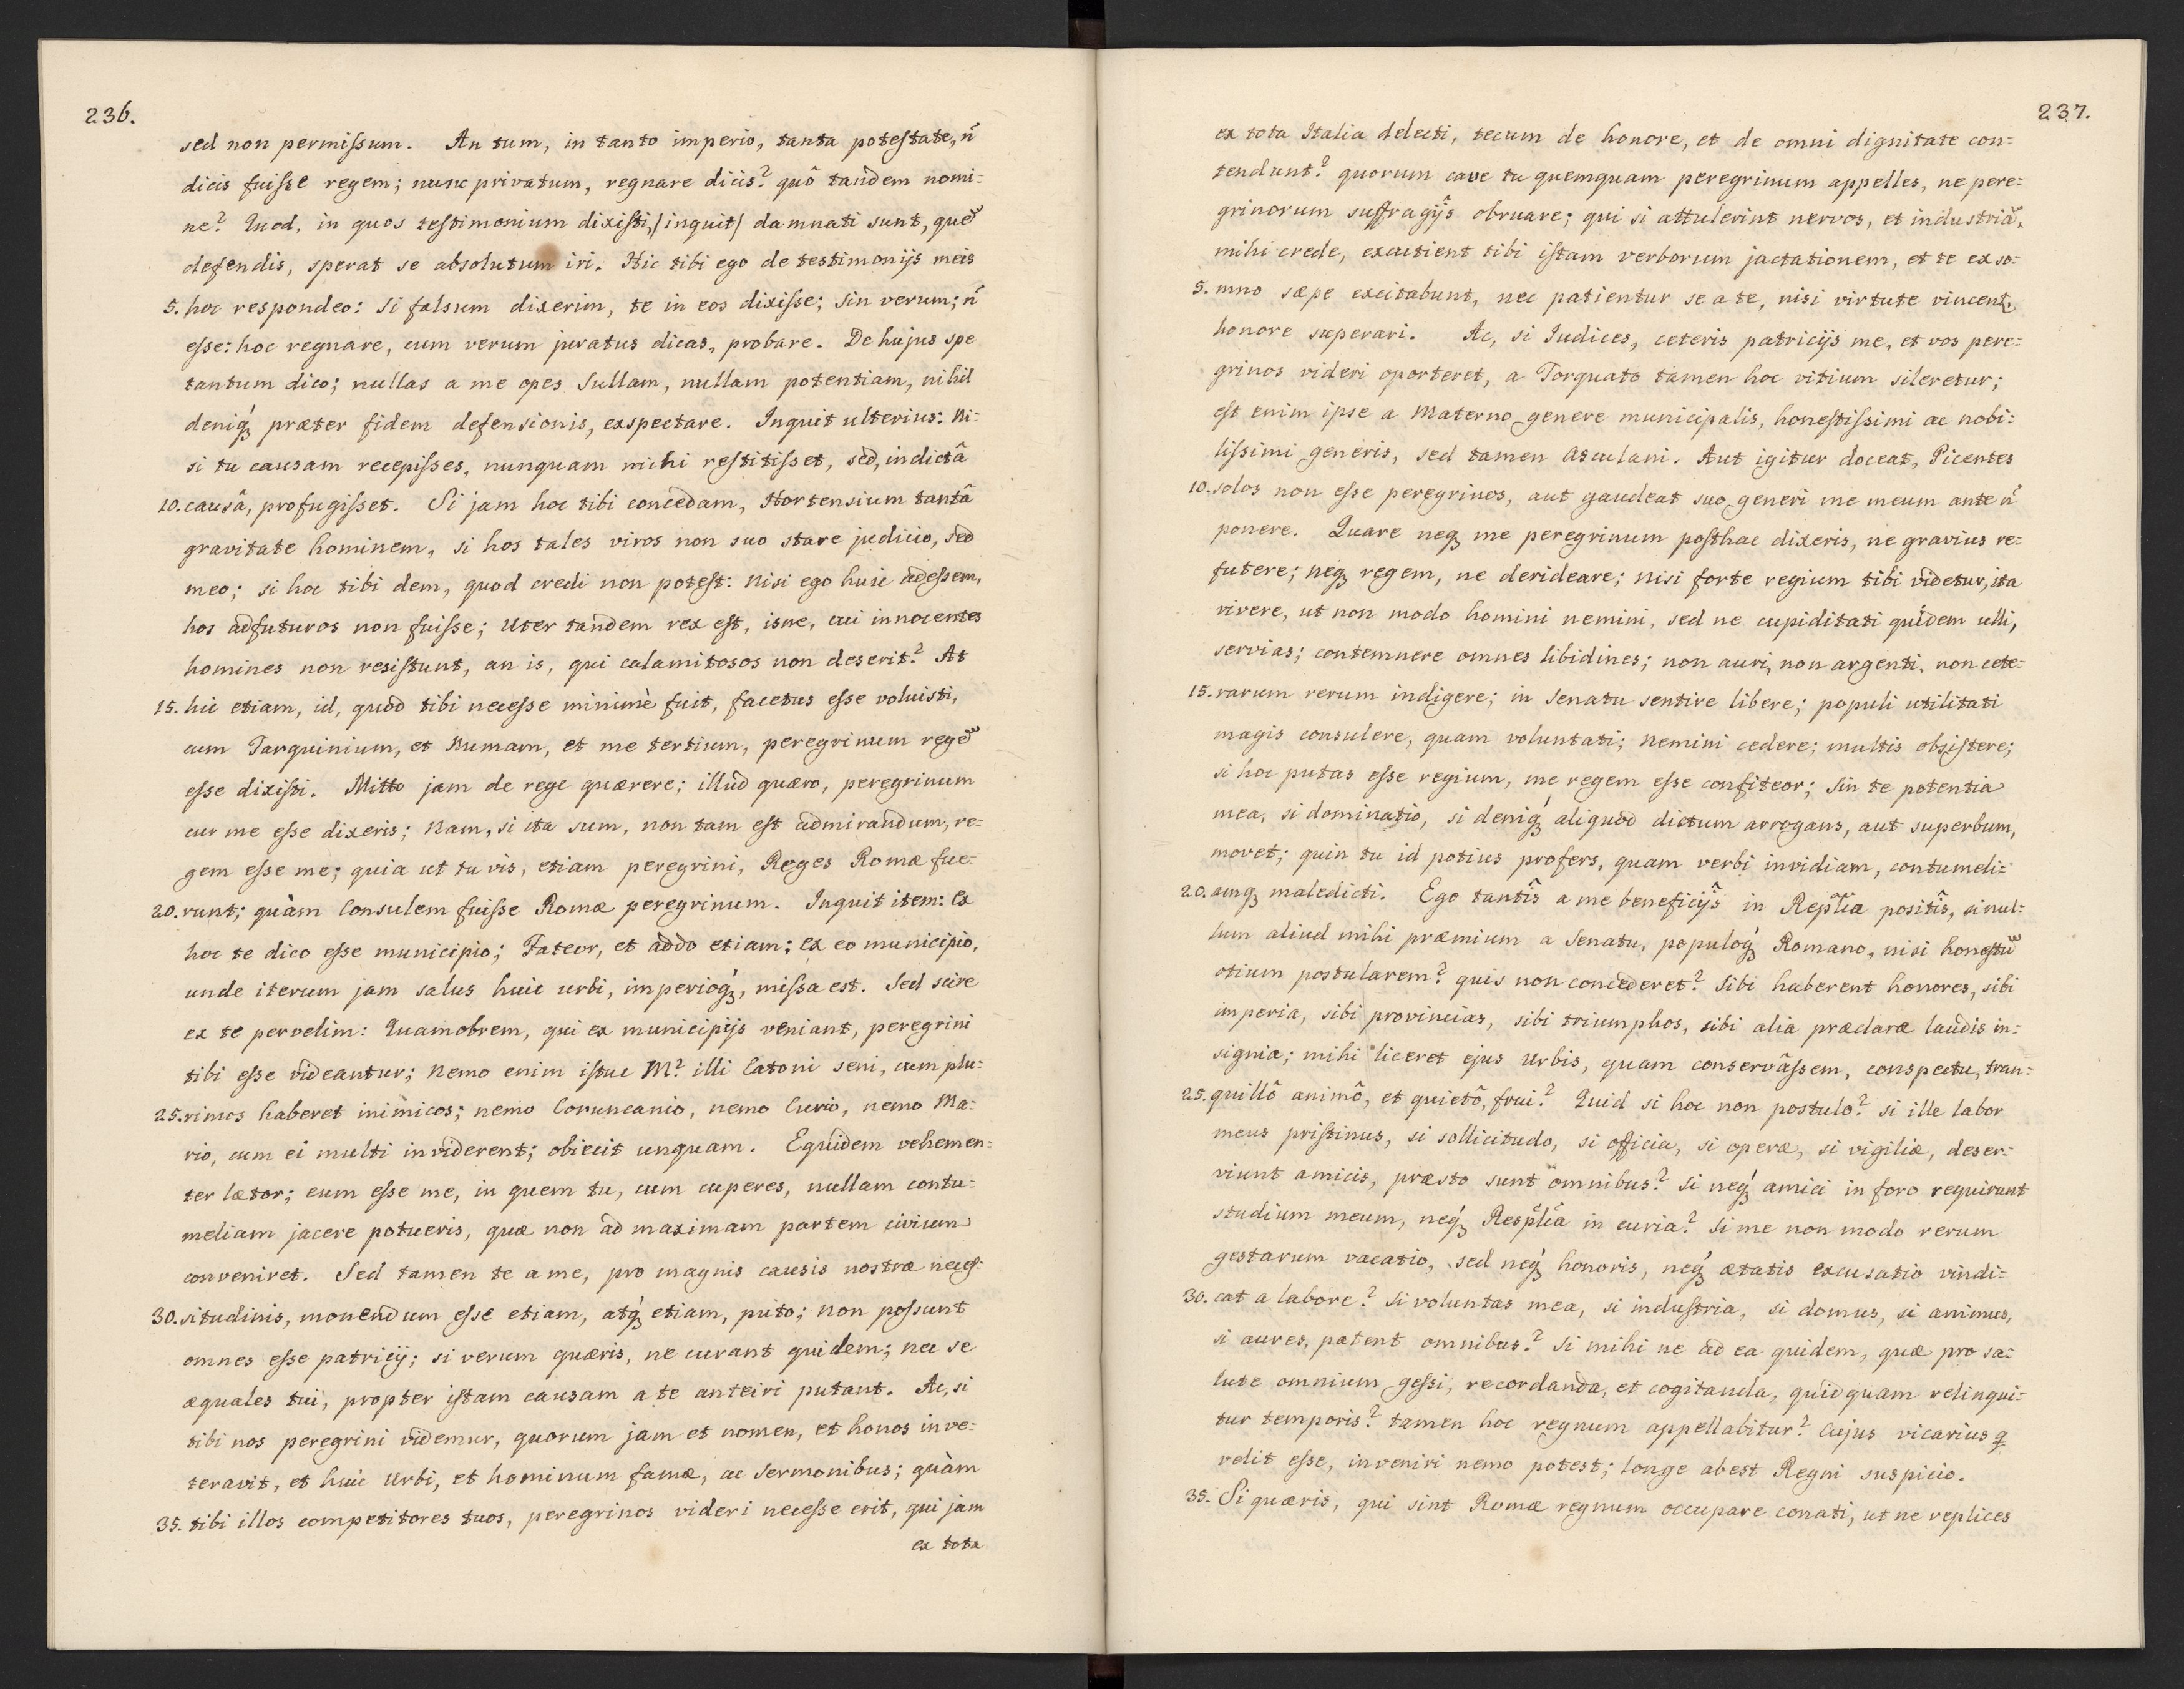 236.
sed non permiſsum. An tum, in tanto imperio, tanta poteſtate, n̄
dicis fuiſse regem; nunc privatum, regnare dicis? quô tandem nomi=
ne? Quod, in quos teſtimonium dixiſti, /inquit/ damnati sunt, quē
defendis, sperat se absolutum iri. Hic tibi ego de testimonijs meis
5. hoc respondeo: si falsum dixerim, te in eos dixiſse; sin verum; n̄
eſse: hoc regnare, cum verum juratus dicas, probare. De hujus spe
tantum dico; nullas a me opes Sullam, nullam potentiam, nihil
deniq́ præter fidem defensionis, exspectare. Inquit ulterius: Ni=
si tu causam recepiſses, nunquam mihi reſtitiſset, sed, indictâ
10. causâ, profugiſset. Si jam hoc tibi concedam, Hortensium tantâ
gravitate hominem, si hos tales viros non suo stare judicio, sed
meo; si hoc tibi dem, quod credi non poteſt: nisi ego huic adeſsem,
hos adfuturos non fuiſse; Uter tandem rex eſt, isne, cui innocentes
homines non resiſtunt, an is, qui calamitosos non deserit? At
15. hic etiam, id, quod tibi neceſse minimè fuit, facetus eſse voluisti,
cum Tarquinium, et Numam, et me tertium, peregrinum regē
eſse dixiſti. Mitto jam de rege quærere; illud quæro, peregrinum
cur me eſse dixeris; Nam, si ita sum, non tam eſt admirandum, re=
gem eſse me; quia ut tu vis, etiam peregrini, Reges Romæ fue=
20. runt; quàm Consulem fuiſse Romæ peregrinum. Inquit item: Ex
hoc te dico eſse municipio; Fateor, et addo etiam; ex eo municipio,
unde iterum jam salus huic urbi, imperioq́, miſsa est. Sed scire
ex te pervelim: Quamobrem, qui ex municipijs veniant, peregrini
tibi eſse videantur; Nemo enim iſtuc M? illi Catoni seni, cum plu=
25. rimos haberet inimicos; nemo Coruncanio, nemo Curio, nemo Ma=
rio, cum ei multi inviderent; obiecit unquam. Equidem vehemen=
ter lætor; eum eſse me, in quem tu, cum cuperes, nullam contu=
meliam jacere potueris, quæ non ad maximam partem civium
conveniret. Sed tamen te a me, pro magnis causis nostræ neceſ=
30. situdinis, monendum eſse etiam, atq́ etiam, puto; Non poſsunt
omnes eſse patricij; si verum quæris, ne curant quidem; nec se
æquales tui, propter iſtam causam a te anteiri putant. Ac, si
tibi nos peregrini videmur, quorum jam et nomen, et honos inve=
teravit, et huic Urbi, et hominum famæ, ac sermonibus; quàm
35. tibi illos competitores tuos, peregrinos videri neceſse erit, qui jam
ex tota
237.
ex tota Italia delecti, tecum de honore, et de omni dignitate con=
tendunt? quorum cave tu quemquam peregrinum appelles, ne pere=
grinorum suffragijs obruare; qui si attulerint nervos, et induſtriā,
mihi crede, excutient tibi iſtam verborum jactationem, et te ex so=
5. mno sæpe excitabunt, nec patientur se a te, nisi virtute vincent,
honore superari. Ac, si Iudices, ceteris patricijs me, et vos pere=
grinos videri oporteret, a Torquato tamen hoc vitium sileretur;
eſt enim ipse a Materno genere municipalis, honeſtiſsimi ac nobi=
liſsimi generis, sed tamen Asculani. Aut igitur doceat, Picentes
10. solos non eſse peregrinos, aut gaudeat suo generi me meum ante n̄
ponere. Quare neq́ me peregrinum poſthac dixeris, ne gravius re=
futere; neq́ regem, ne derideare; nisi forte regium tibi videtur, ita
vivere, ut non modo homini nemini, sed ne cupiditati quidem ulli,
servias; contemnere omnes libidines; non auri, non argenti, non cete=
15. rarum rerum indigere; in Senatu sentire libere; populi utilitati
magis consulere, quam voluntati; nemini cedere; multis obsiſtere;
si hoc putas eſse regium, me regem eſse confiteor; sin te potentia
mea, si dominatio, si deniq́ aliquod dictum arrogans, aut superbum,
movet; quin tu id potius profers, quam verbi invidiam, contumeli=
20. amq́ maledicti. Ego tantîs a me beneficijs in Replĩa positîs, si nul=
lum aliud mihi præmium a Senatu, populoq́ Romano, nisi honeſtū
otium postularem? quis non concederet? Sibi haberent honores, sibi
imperia, sibi provincias, sibi triumphos, sibi alia præclaræ laudis in=
signia; mihi liceret ejus Urbis, quam conservâſsem, conspectu, tran=
25. quillô animô, et quietô, frui? Quid si hoc non postulo? si ille labor
meus priſtinus, si sollicitudo, si officia, si operæ, si vigiliæ, deser=
viunt amicis, præsto sunt omnibus? si neq́ amici in foro requirunt
studium meum, neq́ Resplĩa in curia? si me non modo rerum
gestarum vacatio, sed neq́ honoris, neq́ ætatis excusatio vindi=
30. cat a labore? si voluntas mea, si induſtria, si domus, si animus,
si aures, patent omnibus? si mihi ne ad ea quidem, quæ pro sa=
lute omnium geſsi, recordanda, et cogitanda, quidquam relinqui=
tur temporis? tamen hoc regnum appellabitur? Cujus vicarius q̃
velit eſse, inveniri nemo potest; longe abest Regni suspicio.
35. Si quæris, qui sint Romæ regnum occupare conati, ut ne replices